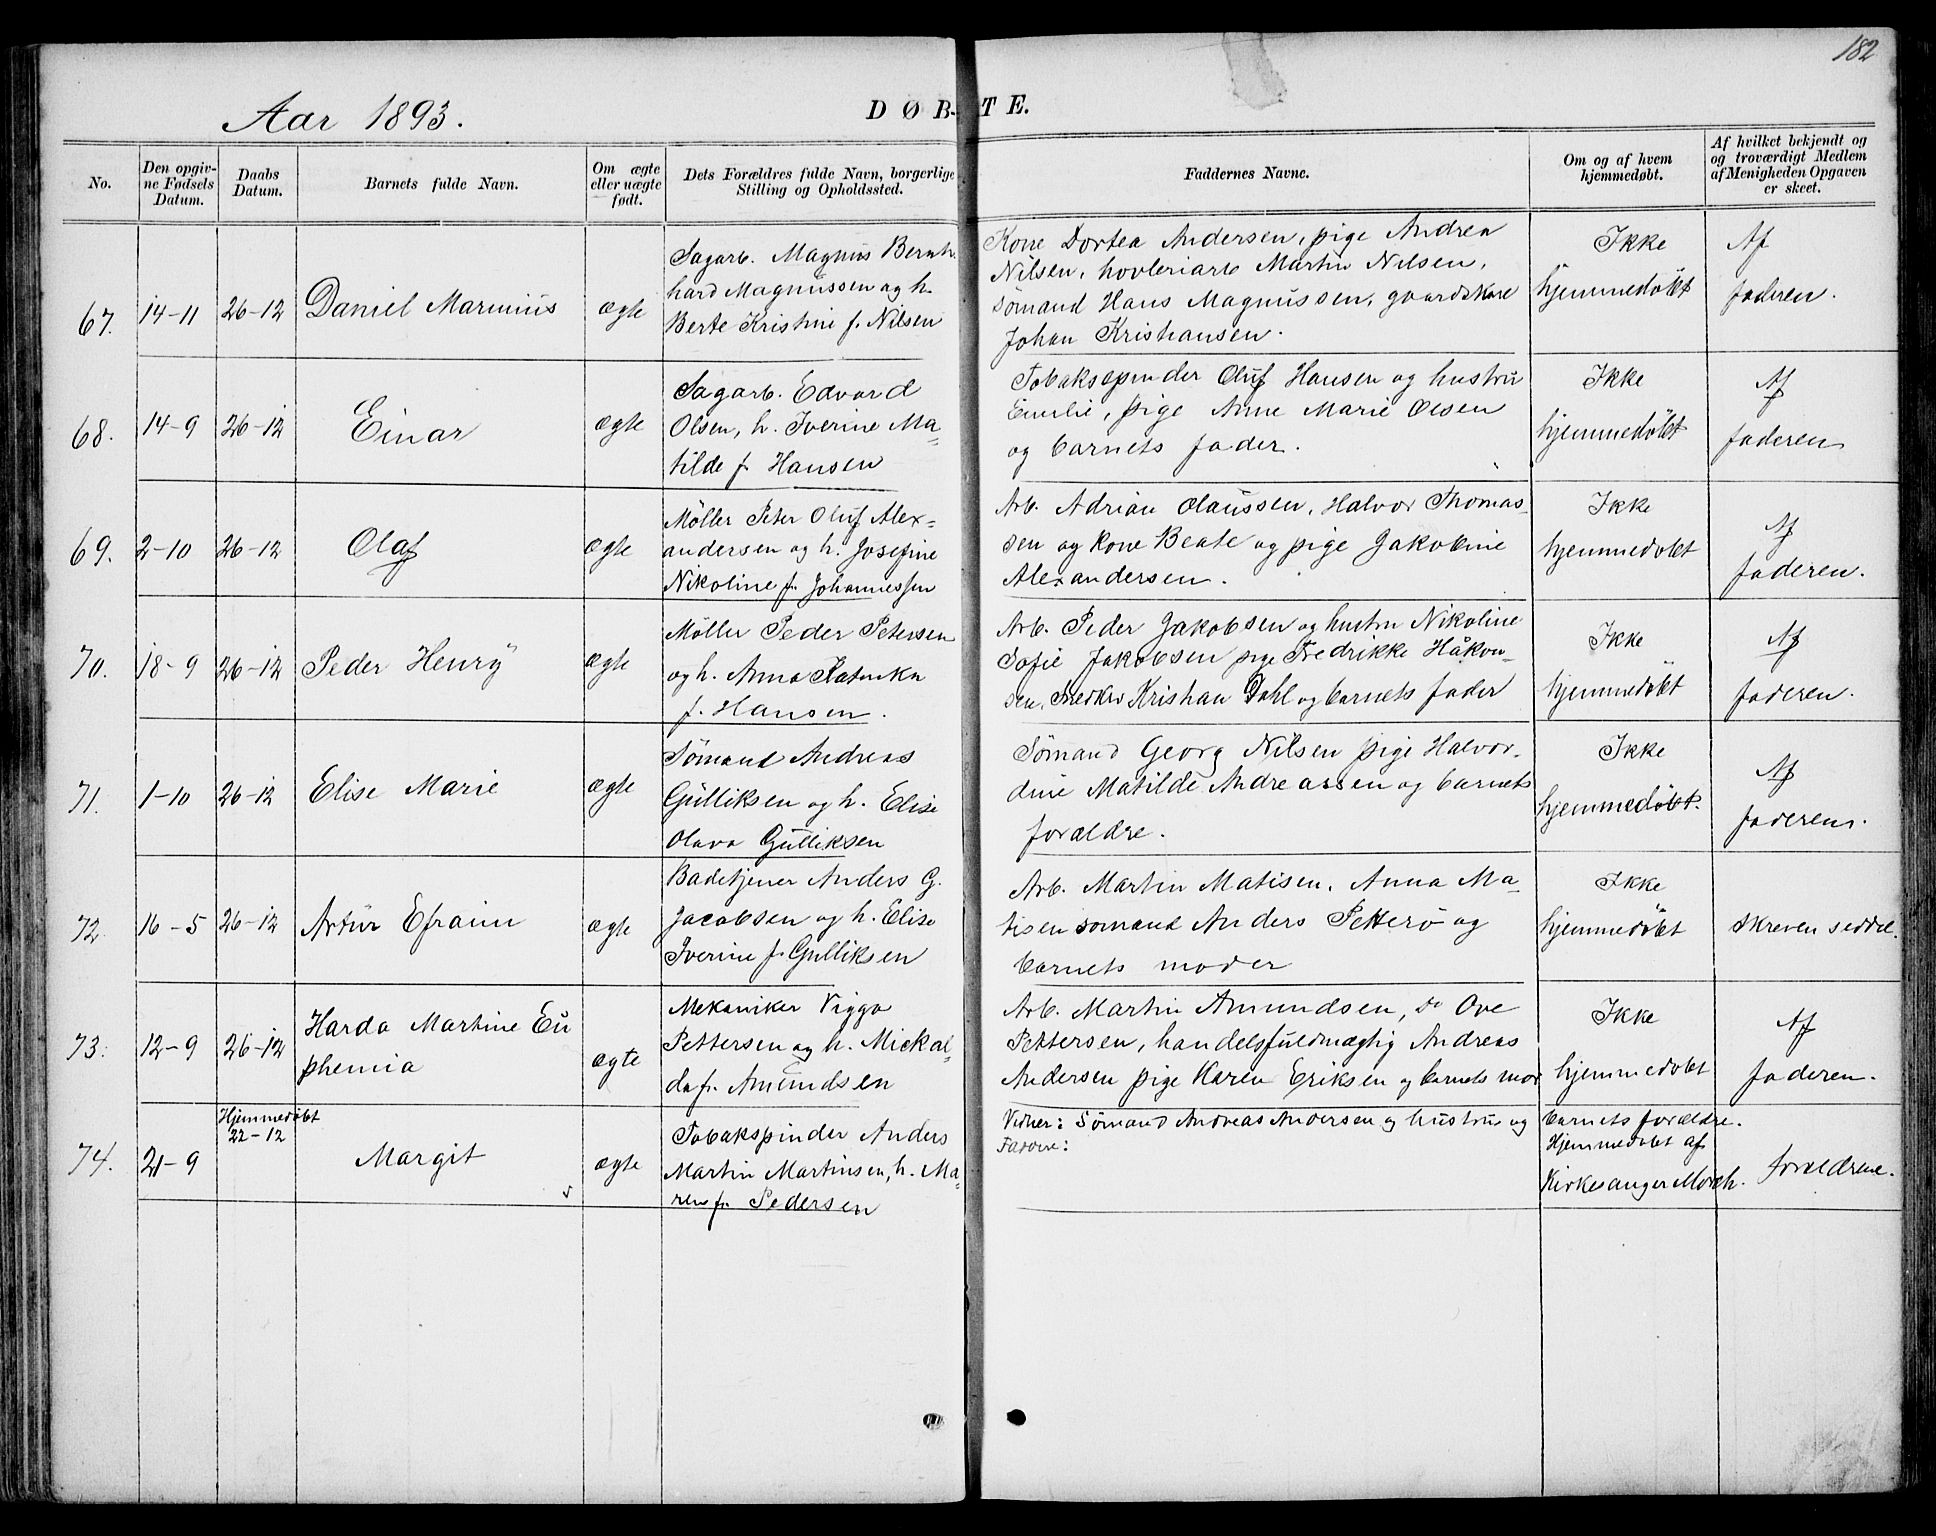 182
Aar 1893.
DØBTE.
No.
Den opgivne Fødsels Datum.
Daabs Datum.
Barnets fulde Navn.
Om ægte eller uægte født.
Dets Forældres fulde Navn, borgerlige Stilling og Opholdssted.
Faddernes Navne.
Om og af hvem hjemmedøbt.
Af hvilket bekjendt og og troværdigt Medlem af Menigheden Opgaven er skeet.
67.
14-11
26-12
Daniel Marinius
ægte
Sagarb. Magnus Bernh
hard Magnussen og h.
Berte Kristine f. Nilsen
Kone Dortea Andersen, pige Andrea
Nilsen, hovleriarb Martin Nilsen,
sømand Hans Magnussen, gaardskare
Johan Kristiansen.
Ikke
hjemmedøbt
Af
faderen.
68.
14-9
26-12
Einar
ægte
Sagarb. Edvard
Olsen, h. Iverine Ma=
tilde f. Hansen
Tobakspinder Oluf Hansen og hustru
Emilie, pige Anne Marie Olsen
og barnets fader.
Ikke
hjemmedøbt
Af
faderen
69.
2-10
26-12
Olaf
ægte
Møller Peter Oluf Alex=
andersen og h. Josefine
Nikoline f. Johannessen
Arb. Adrian Olaussen, Halvor Thomas-
sen og kone Beate og pige Jakobine
Alexandersen.
Ikke
hjemmedøbt
Af
faderen.
70.
18-9
26-12
Peder Henry
ægte
Møller Peder Petersen
og h. Anna
f. Hansen.
Arb. Peder Jakobsen og hustru Nikoline
Sofie Jakobsen pige Fredrikke Håkon-
sen, Kristian Dahl og barnets fader
Ikke
hjemmedøbt
Af
faderen.
71.
1-10
26-12
Elise Marie
ægte
Sømand Andreas
Gulliksen og h. Elise
Olava Gulliksen
Sømand Georg Nilsen pige Halvor-
dine Matilde Andreassen og barnets
forældre.
Ikke
hjemmedøbt.
Af
faderen.
72.
16-5
26-12
Artur Efraim
ægte
Badetjener Anders G.
Jacobsen og h. Elise
Iverine f. Gulliksen
Arb. Martin Matisen, Anna Ma-
tisen sømand Anders Petterø og
barnets moder
Ikke
hjemmedøbt
skreven seddel.
73.
12-9
26-12
Harda Martine Eu
phemia
ægte
Mekaniker Viggo
Pettersen og h. Mickal-
da f. Amundsen
Arb. Martin Amundsen, do Ove
Pettersen, handelsfuldmægtig Andreas
Andersen pige Karen Eriksen og barnets mor
Ikke
hjemmedøbt
Af
faderen.
74.
21-9
Hjemmedøbt
22-12
Margit
ægte
Tobakspinder Anders
Martin Martinsen, h. Ma-
ren f. Pedersen
Vidner: Sømand Andreas Andersen og hustru og barnets forældre.
Faddere:
Hjemmedøbt af
Kirkesanger Mørch.
forældrene.